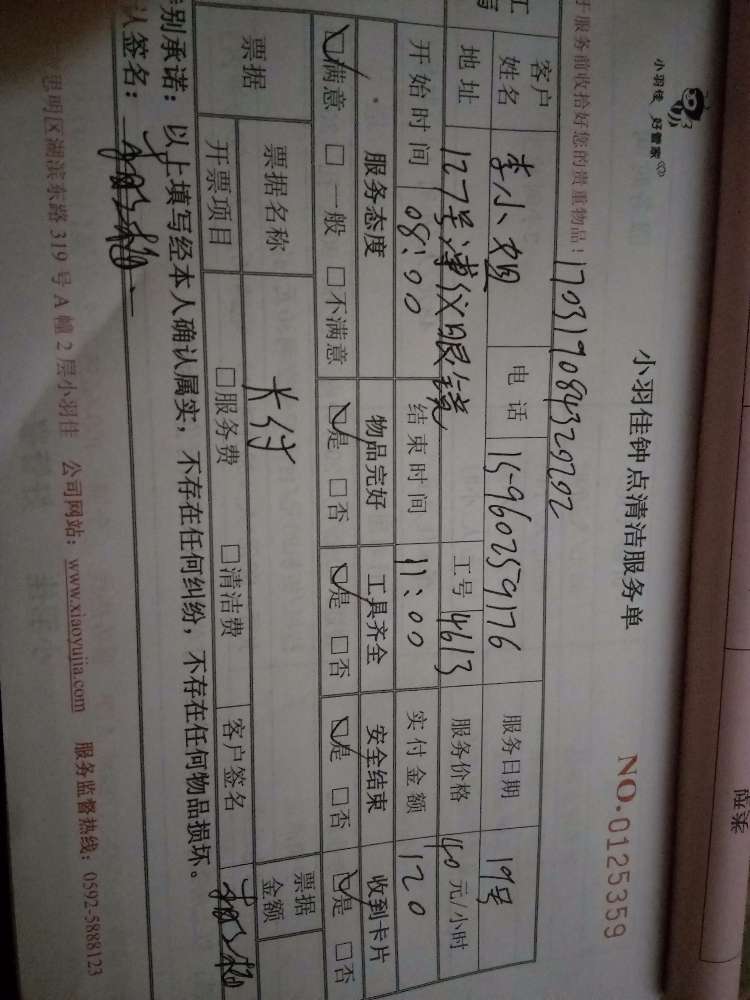 小羽佳 好管家
小羽佳钟点清洁服务单
NO.0125359
于服务前收拾好您的贵重物品!
170319084329292
客户姓名 李小姐 电话 15960259176 服务日期 19号
地址 127号 仪眼镜 工号 4613 服务价格 40元/小时
开始时间 08:00 结束时间 11:00 实付金额 120
服务态度 物品完好 工具齐全 安全结束 收到卡片
☑满意 □一般 □不满意 ☑是 □否 ☑是 □否 ☑是 □否 ☑是 □否
票据 票据名称 卡付 票据金额
开票项目 □服务费 □清洁费 客户签名
别承诺:以上填写经本人确认属实,不存在任何纠纷,不存在任何物品损坏。
人签名:
思明区湖滨东路319号A幢2层小羽佳 公司网站:www.xiaoyujia.com 服务监督热线:0592-5888123